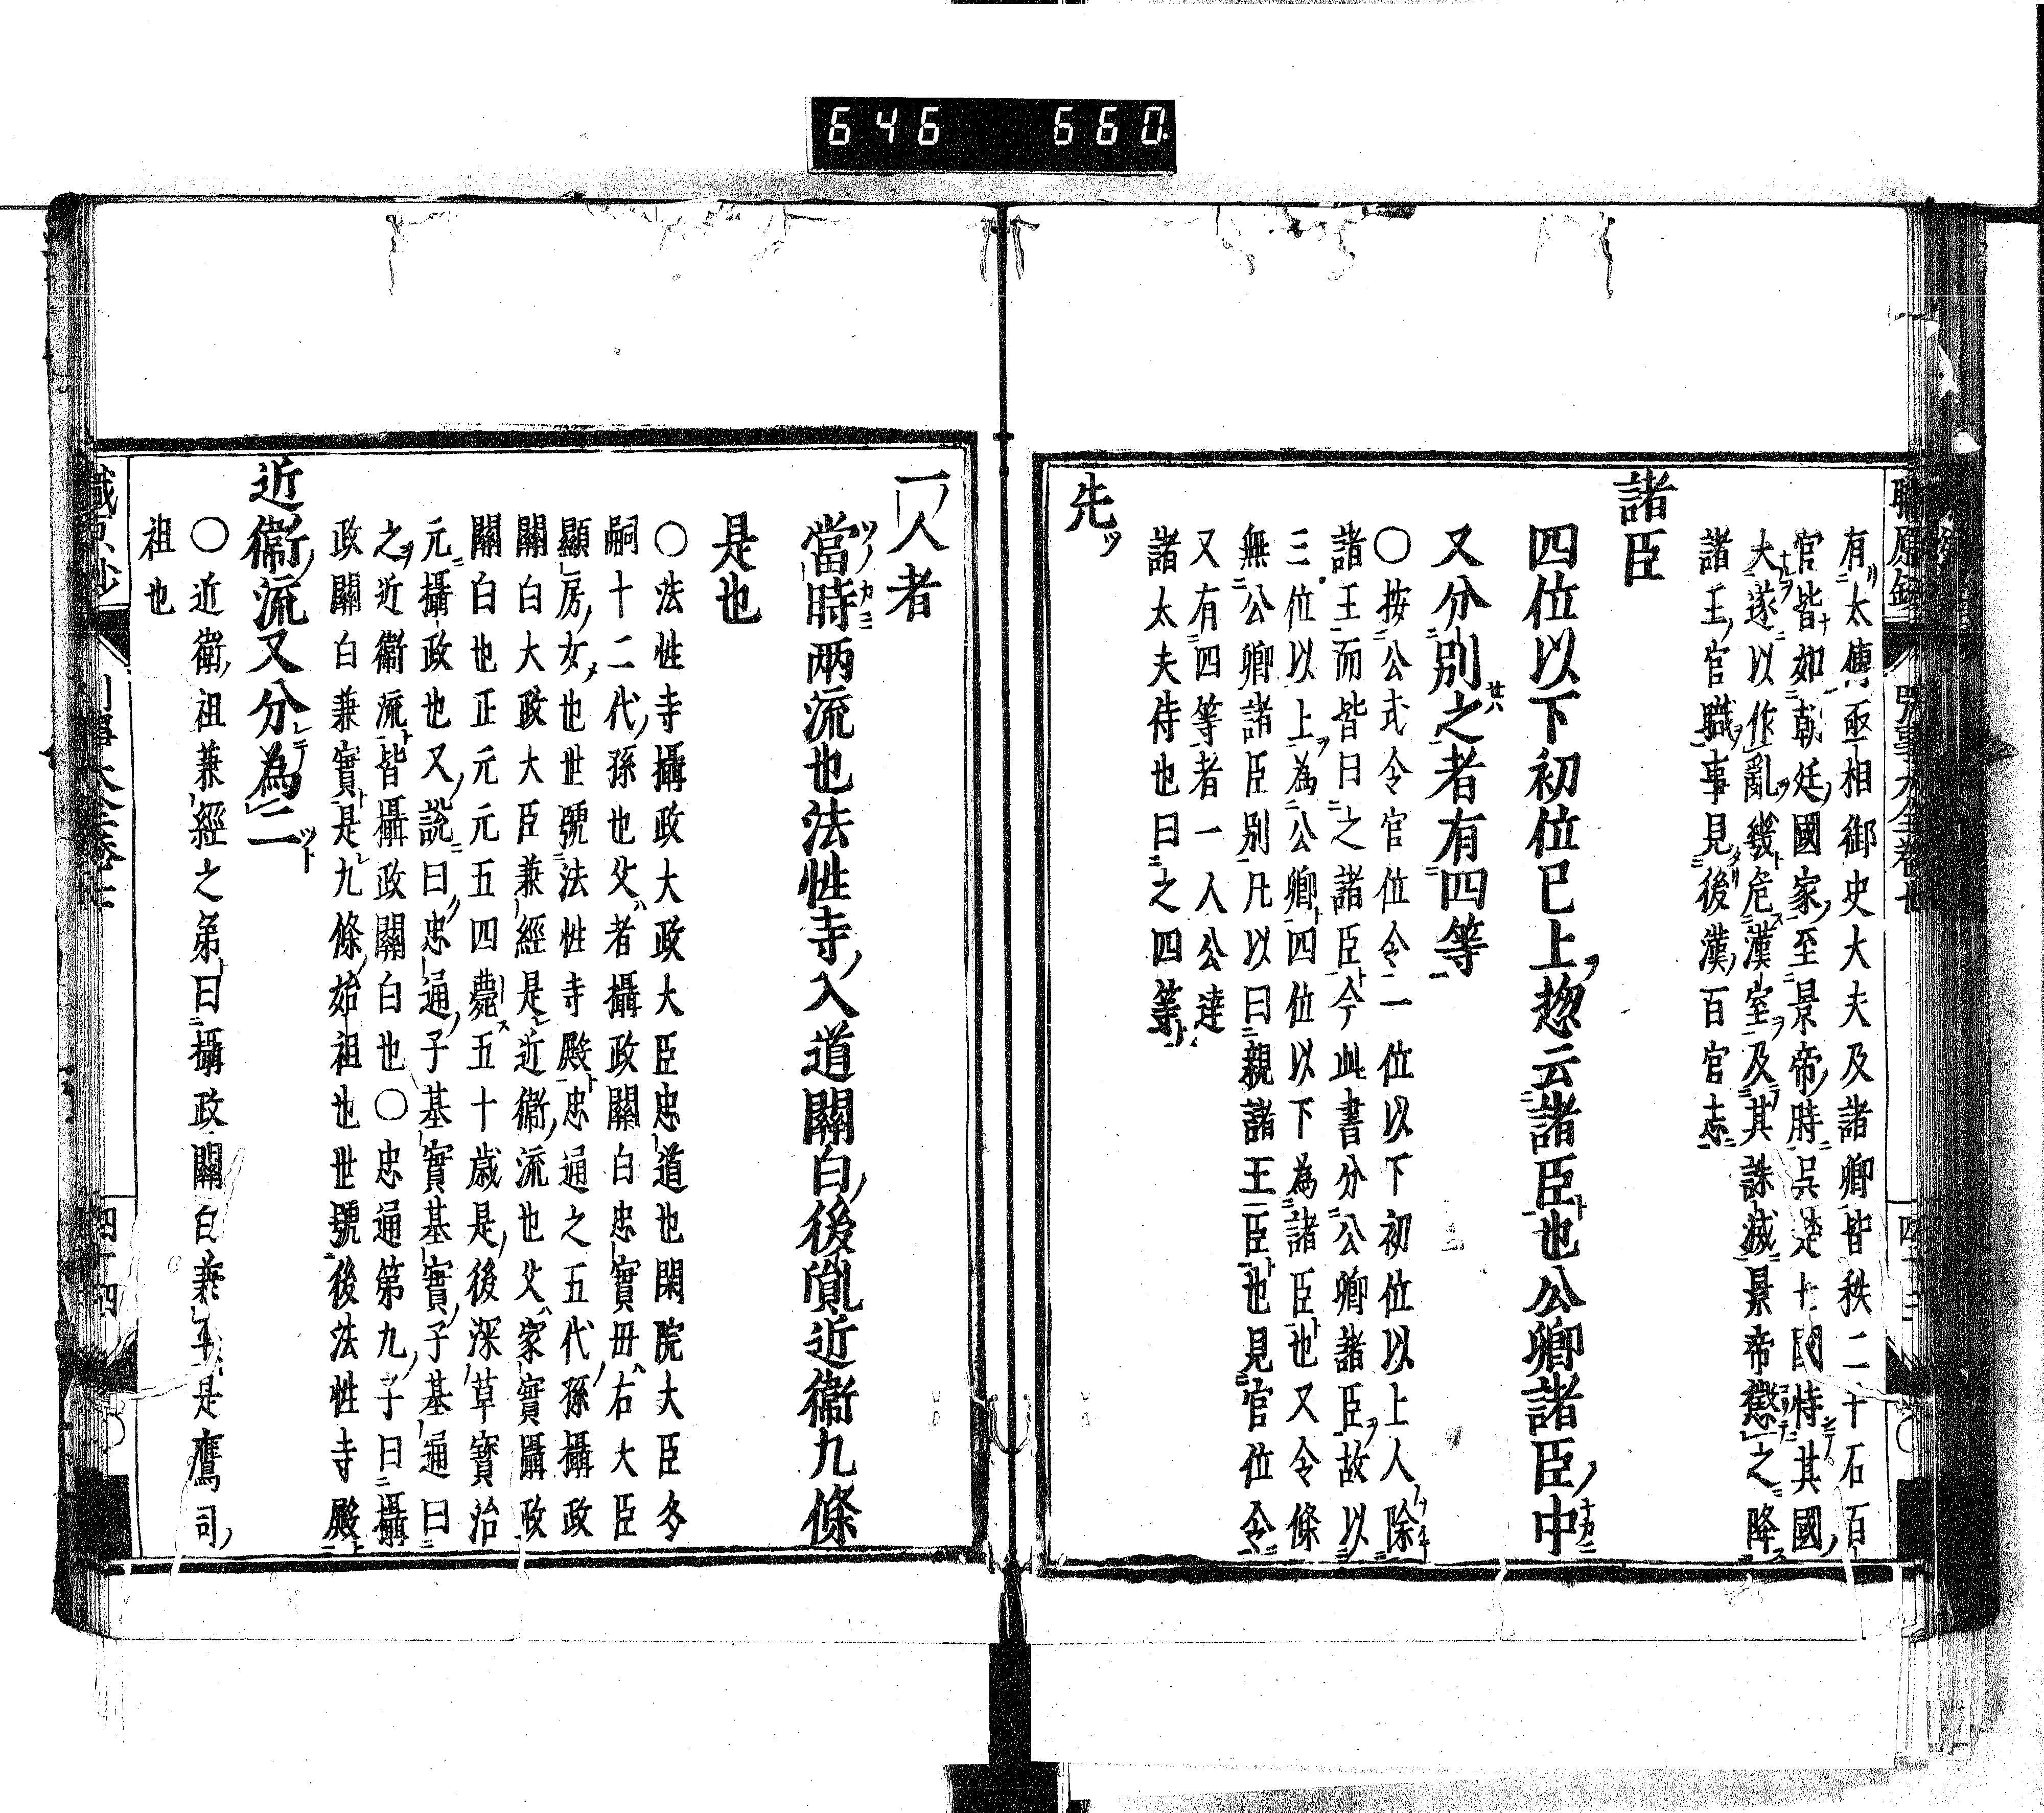 646 660
有太傅丞相御史大夫及諸卿皆秩二千石百
官皆如朝廷國家至景帝時呉楚七國恃其國
大遂以作亂幾危漢室及其誅滅景帝懲之降
諸王官職事見後漢百官志
諸臣
四位以下初位已上惣云諸臣也公卿諸臣中
又分別之者有四等
〇按公式令官位令一位以下初位以上人除
諸王而皆曰之諸臣今此書分公卿諸臣故以
三位以上為公卿四位以下為諸臣也又令條
無公卿諸臣別凡以曰親諸王臣也見官位令
又有四等者一人公達
諸太夫侍也曰之四等
先
一人者
當時両流也法性寺入道關白後胤近衞九條
是也
〇法性寺攝政大政大臣忠道也閑院大臣冬
嗣十二代孫也父者攝政關白忠實毋右大臣
顯房女也世號法性寺殿忠通之五代孫攝政
關白大政大臣兼經是近衞流也父家實攝政
關白也正元元五四薨五十歳是後深草寳治
元攝政也又説曰忠通子基實基實子基通曰
之近衞流皆攝政關白也〇忠通第九子曰攝
政關白兼實是九條始祖也世號後法性寺殿
近衞流又分為二
〇近衞祖兼經之弟曰攝政關白兼平是鷹司
祖也